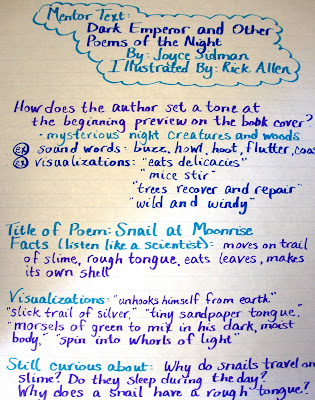 Mentor Text:
Dark Emperor and Other
Poems of the Night
By: Joyce Sidman
Illustrated By: Rick Allen
How does the author set a tone at
the beginning preview on the book cover?
· mysterious night creatures and woods
ex sound words: buzz, howl, hoot, flutter,
ex visualizations: "eats delicacies"
"mice stir"
"trees recover and repair"
"wild and windy"
Title of Poem: Snail at Moonrise
Facts (listen like a scientist): moves on trail
of slime, rough tongue, eats leaves, makes
its own shell
Visualizations: "unhooks himself from earth"
"slick trail of silver," "tiny sandpaper tongue,"
"morsels of green to mix in his dark, moist
body," "spin into whorls of light"
Still curious about: Why do snails travel on
slime? Do they sleep during the day?
Why does a snail have a rough tongue?